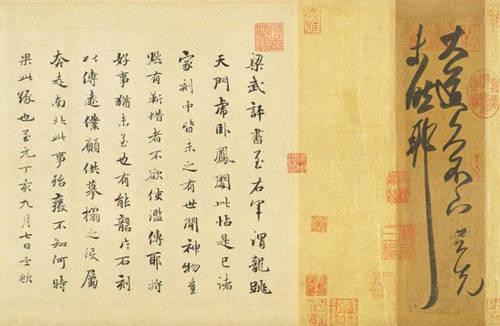 大道久不下与先
未然耶
梁武評書至右軍謂龍跳
天門虎臥鳳闕此帖是已諸
家刻中皆未之有世間神物豈
黙有靳惜者不欲使濫傳耶將
好事猶未至也有能片石刻
以傳遠僕願供摹搨之役屬
奔走南北此事殆廢不知何時
果此緣也至元丁亥九月七日